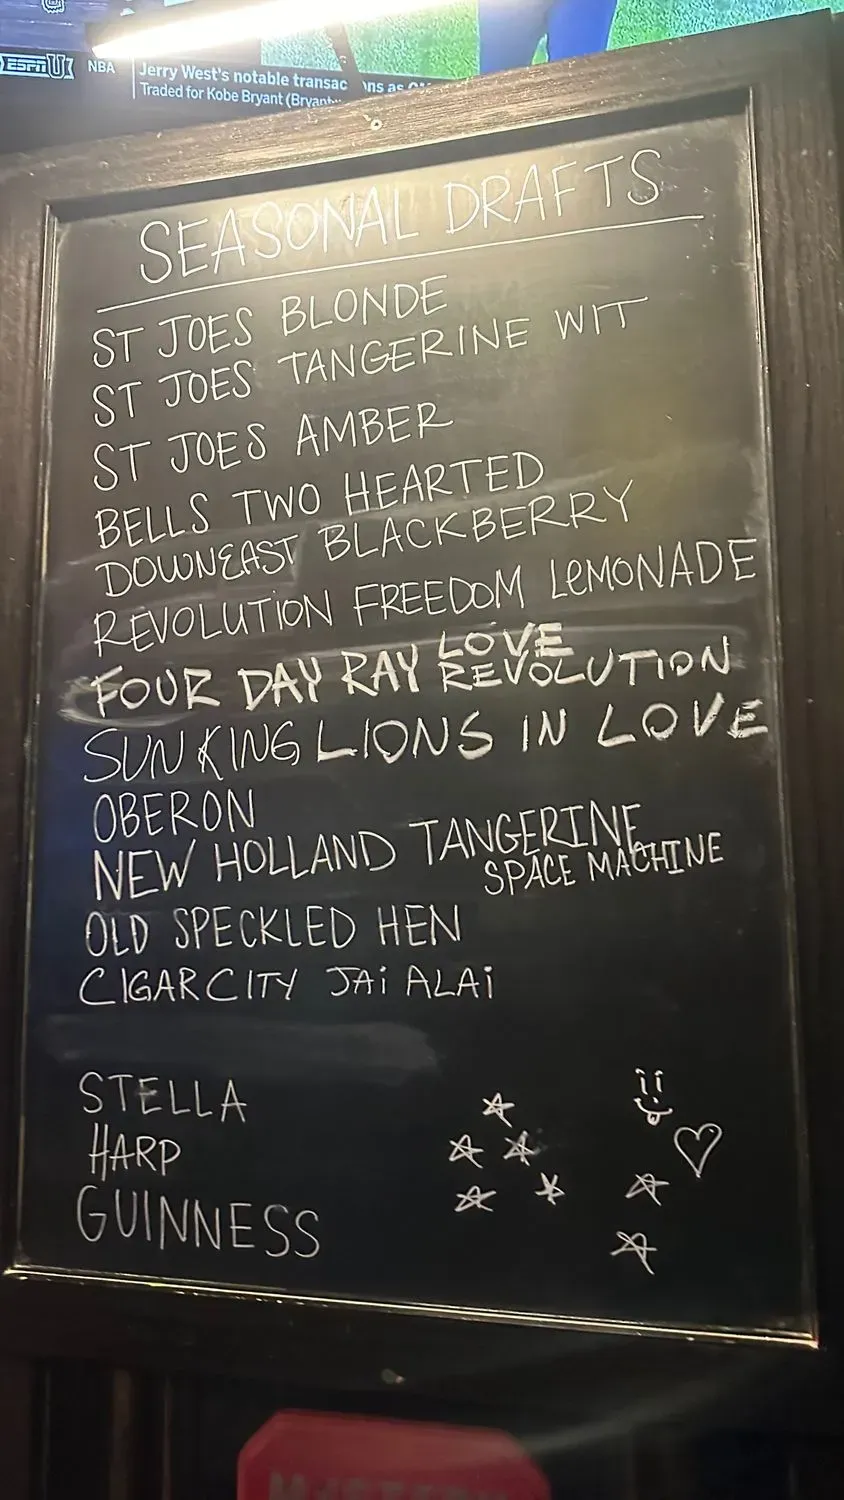 ESPNU NBA Jerry West's notable transac ns as
Traded for Kobe Bryant (Bryant
SEASONAL DRAFTS
ST JOES BLONDE
ST JOES TANGERINE WIT
ST JOES AMBER
BELLS TWO HEARTED
DOWNEAST BLACKBERRY
REVOLUTION FREEDOM LEMONADE
FOUR DAY RAY LOVE
REVOLUTION
SUN KING LIONS IN LOVE
OBERON
NEW HOLLAND TANGERINE
SPACE MACHINE
OLD SPECKLED HEN
CIGAR CITY JAi ALAi
STELLA
HARP
GUINNESS